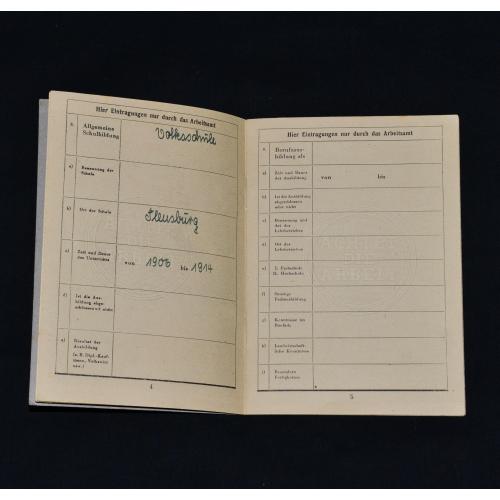 Hier Eintragungen nur durch das Arbeitsamt
8. Allgemeine Schulbildung
Volksschule
a) Benennung der Schule
b) Ort der Schule
Flensburg
c) Zeit und Dauer des Unterrichtes
von 1906 bis 1914
d) Ist die Ausbildung abgeschlossen oder nicht
e) Resultat der Ausbildung (z. B. Dipl.-Kaufmann, Volkswirt usw.)
4
Hier Eintragungen nur durch das Arbeitsamt
Berufsausbildung als
a) Zeit und Dauer der Ausbildung
von bis
b) Ist die Ausbildung abgeschlossen oder nicht
c) Benennung und Art der Lehrbetriebes
d) Ort der Lehrbetriebes
e) I. Fachschule II. Hochschule
f) Sonstige Fachausbildung
g) Kenntnisse im Berufe
h) Landwirtschaftliche Kenntnisse
i) Besondere Fertigkeiten
5